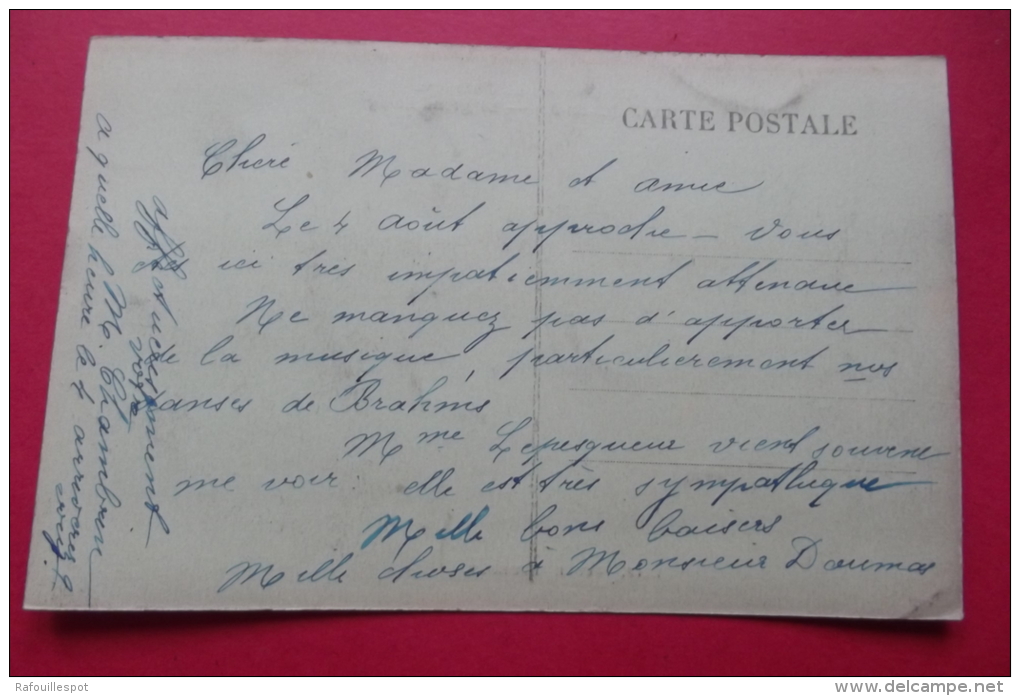 CARTE POSTALE
Chère Madame et amie
Le 4 août approche — Vous
êtes ici très impatiemment attendue
Ne manquez pas d'apporter
de la musique, particulièrement nos
danses de Brahms
Mme Lepesqueur vient souvent
me voir elle est très sympathique
Mille bons baisers
Mille choses à Monsieur Daumas
affectueusement
vôtre
M. Chambrun
a quelle heure le 4 arriverez
Rafouillespot
www.delcampe.net